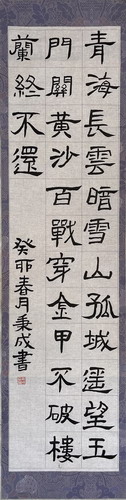 青海長雲暗雪山孤城遥望玉
門關黃沙百戰穿金甲不破樓
蘭終不還
癸卯春月秉成書